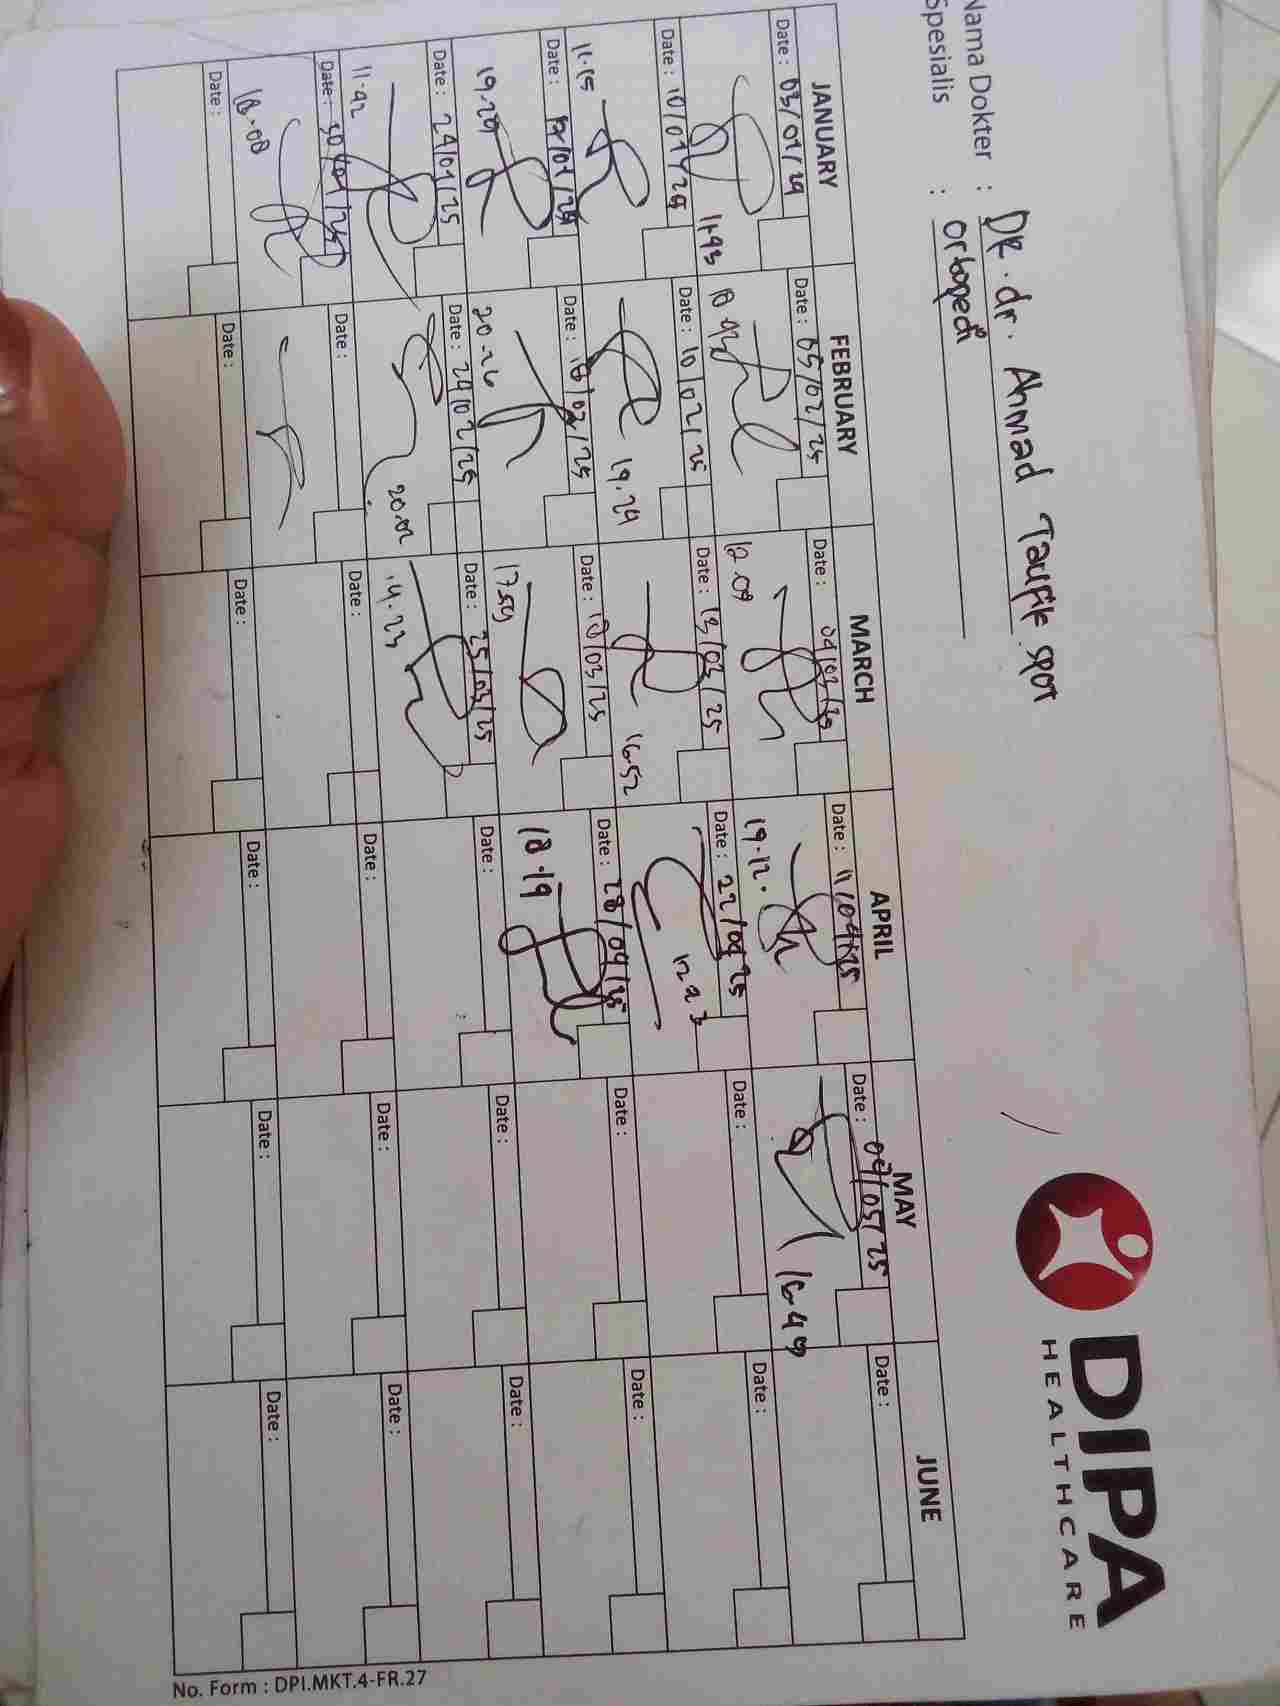 Nama Dokter : DR. dr. Ahmad Taufik spot
Spesialis : ortopedi
DIPA
HEALTHCARE
JANUARY FEBRUARY MARCH APRIL MAY JUNE
Date : 03/01/24 Date : 05/02/25 Date : 04/03/25 Date : 11/04/25 Date : 09/05/25 Date :
11.43 12.09 19.12. 16.49
Date : 10/01/25 Date : 10/02/25 Date : 13/03/25 Date : 22/04/25 Date : Date :
11.15 19.24 16.52
Date : 17/01/25 Date : 18/02/25 Date : 18/03/25 Date : 28/04/25 Date : Date :
19.20 20.26 17.59 18.19
Date : 24/01/25 Date : 24/02/25 Date : 25/03/25 Date : Date : Date :
11.42 20.02 14.23
Date : 30/01/25 Date : Date : Date : Date : Date :
18.08
Date : Date : Date : Date : Date : Date :
No. Form : DPI.MKT.4-FR.27